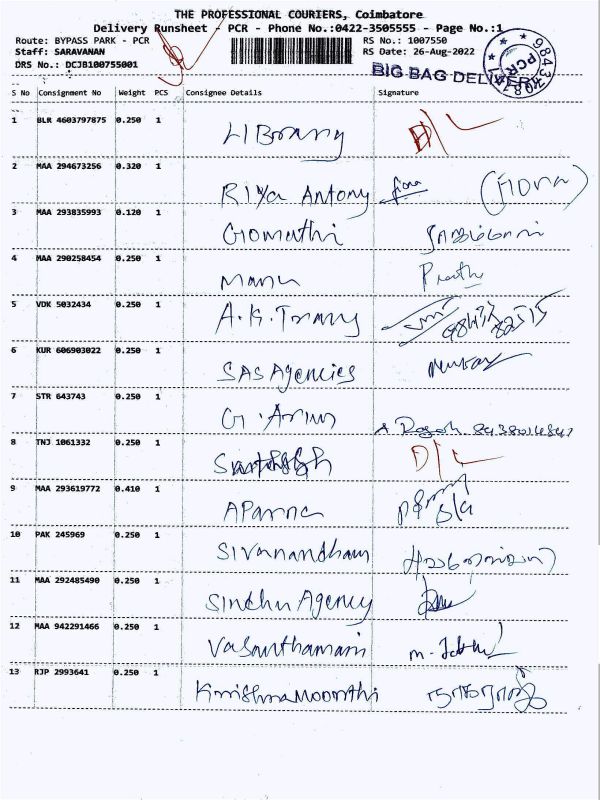 THE PROFESSIONAL COURIERS, Coimbatore
Delivery Runsheet - PCR - Phone No.:0422-3505555 - Page No.:1
Route: BYPASS PARK - PCR RS No.: 1007550
Staff: SARAVANAN RS Date: 26-Aug-2022
DRS No.: DCJB100755001
BIG BAG DELIVERY
PCR
S No Consignment No Weight PCS Consignee Details Signature
1 BLR 4603797875 0.250 1 Library D/L
2 MAA 294673256 0.320 1 Riya Antony fiona (FIONA)
3 MAA 293835993 0.120 1 Gomathi
4 MAA 290258454 0.250 1 Manu
5 VDK 5032434 0.250 1 A.K.
6 KUR 606903022 0.250 1 SAS Agencies
7 STR 643743 0.250 1 G. Arun
8 TNJ 1061332 0.250 1 D/L
9 MAA 293619772 0.410 1 Aparna
10 PAK 245969 0.250 1 Sivanandham
11 MAA 292485490 0.250 1 Sindhu Agency
12 MAA 942291466 0.250 1 Vasanthamani
13 RJP 2993641 0.250 1 Krishnamoorthi